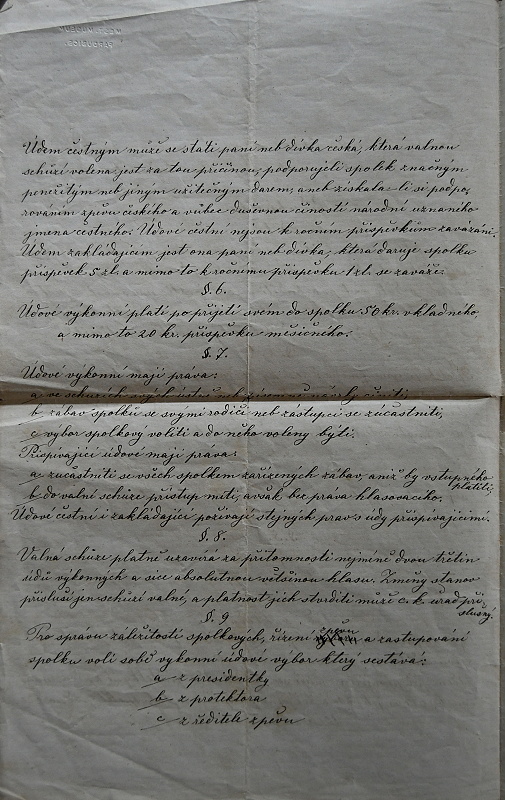 Údem čestným může se státi paní neb dívka česká, která valnou
schůzí volena jest za tou příčinou, podporujeli spolek značným
peněžitým neb jiným užitečným darem, aneb získala-li si podpo-
rováním zpěvu českého a vůbec duševnou činností národní uznaného
jmena čestného. Údové čestní nejsou k ročním příspěvkům zavázáni.
Údem zakládajícim jest ona paní neb dívka, která daruje spolku
příspěvek 5 zl. a mimo to k ročnímu příspěvku 1 zl. se zaváže.
§. 6.
Údové výkonní platí po přijetí svém do spolku 50 kr. vkladného
a mimo to 20 kr. příspěvku měsíčného.
§. 7.
Údové výkonní mají práva:
a ve schůzích svých ústně neb písemně návrhy činiti,
b zábav spolku se svými rodiči neb zástupci se zúčastniti,
c výbor spolkový voliti a do něho voleny býti.
Přispívající údové mají práva:
a zúčastniti se všech spolkem zařízených zábav, aniž by vstupného
platili.
b do valní schůze přístup míti, avšak bez práva hlasovacího.
Údové čestní i zakládající požívají stejných práv s údy přispívajícími.
§. 8.
Valná schůze platně uzavírá za přítomnosti nejméně dvou třetin
údů výkonných a sice absolutnou většinou hlasů. Změny stanov
přísluší jen schůzi valné, a platnost jich stvrditi může c. k. úřad pří-
slušný.
§. 9
Pro správu záležitostí spolkových, řízení zpěvu a zastupování
spolku volí sobě výkonní údové výbor který sestává:
a z presidentky
b z protektora
c z ředitele zpěvu